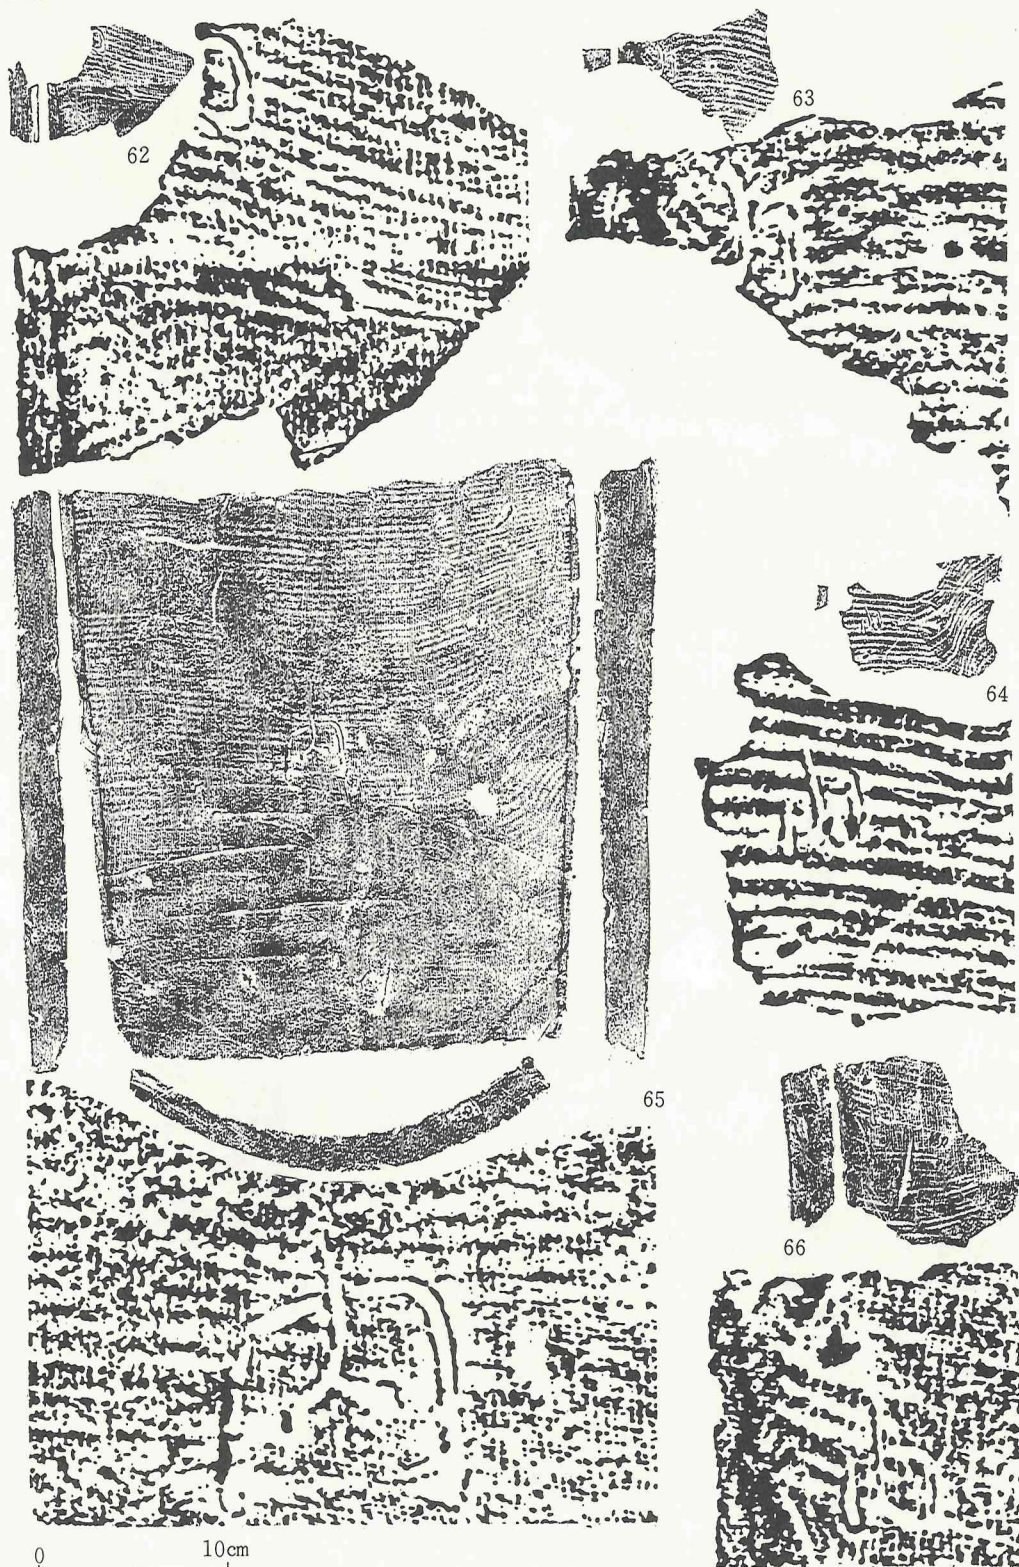 62
63
64
65
66
0 10cm